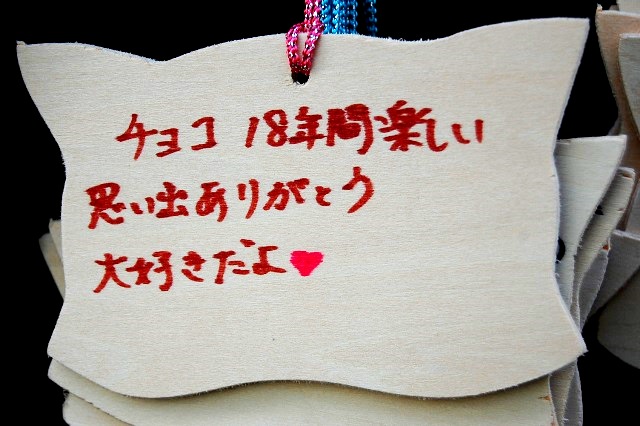 チョコ 18年間楽しい
思い出ありがとう
大好きだよ♥